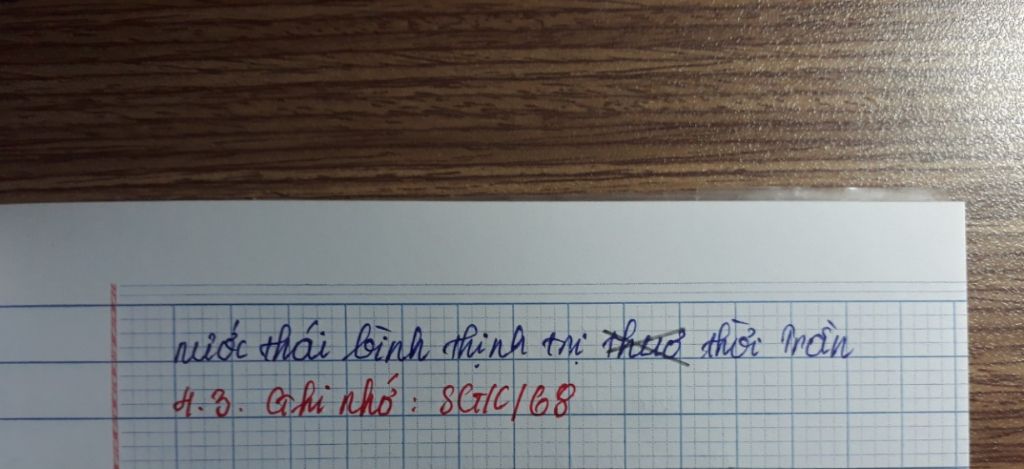 nước thái bình thịnh trị thuở thời Trần
4.3. Ghi nhớ: SGK/68